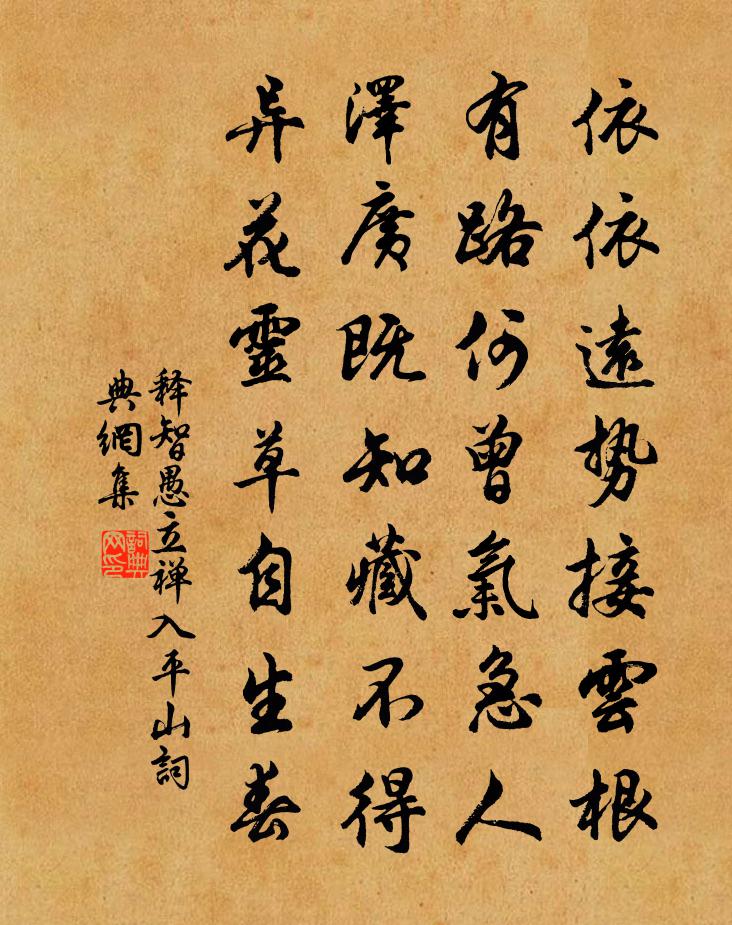 依依遠势接雲根
有路何曾氣急人
澤廣既知藏不得
异花靈草自生春
释智愚立禅入平山詞
典網集
詞典
网印